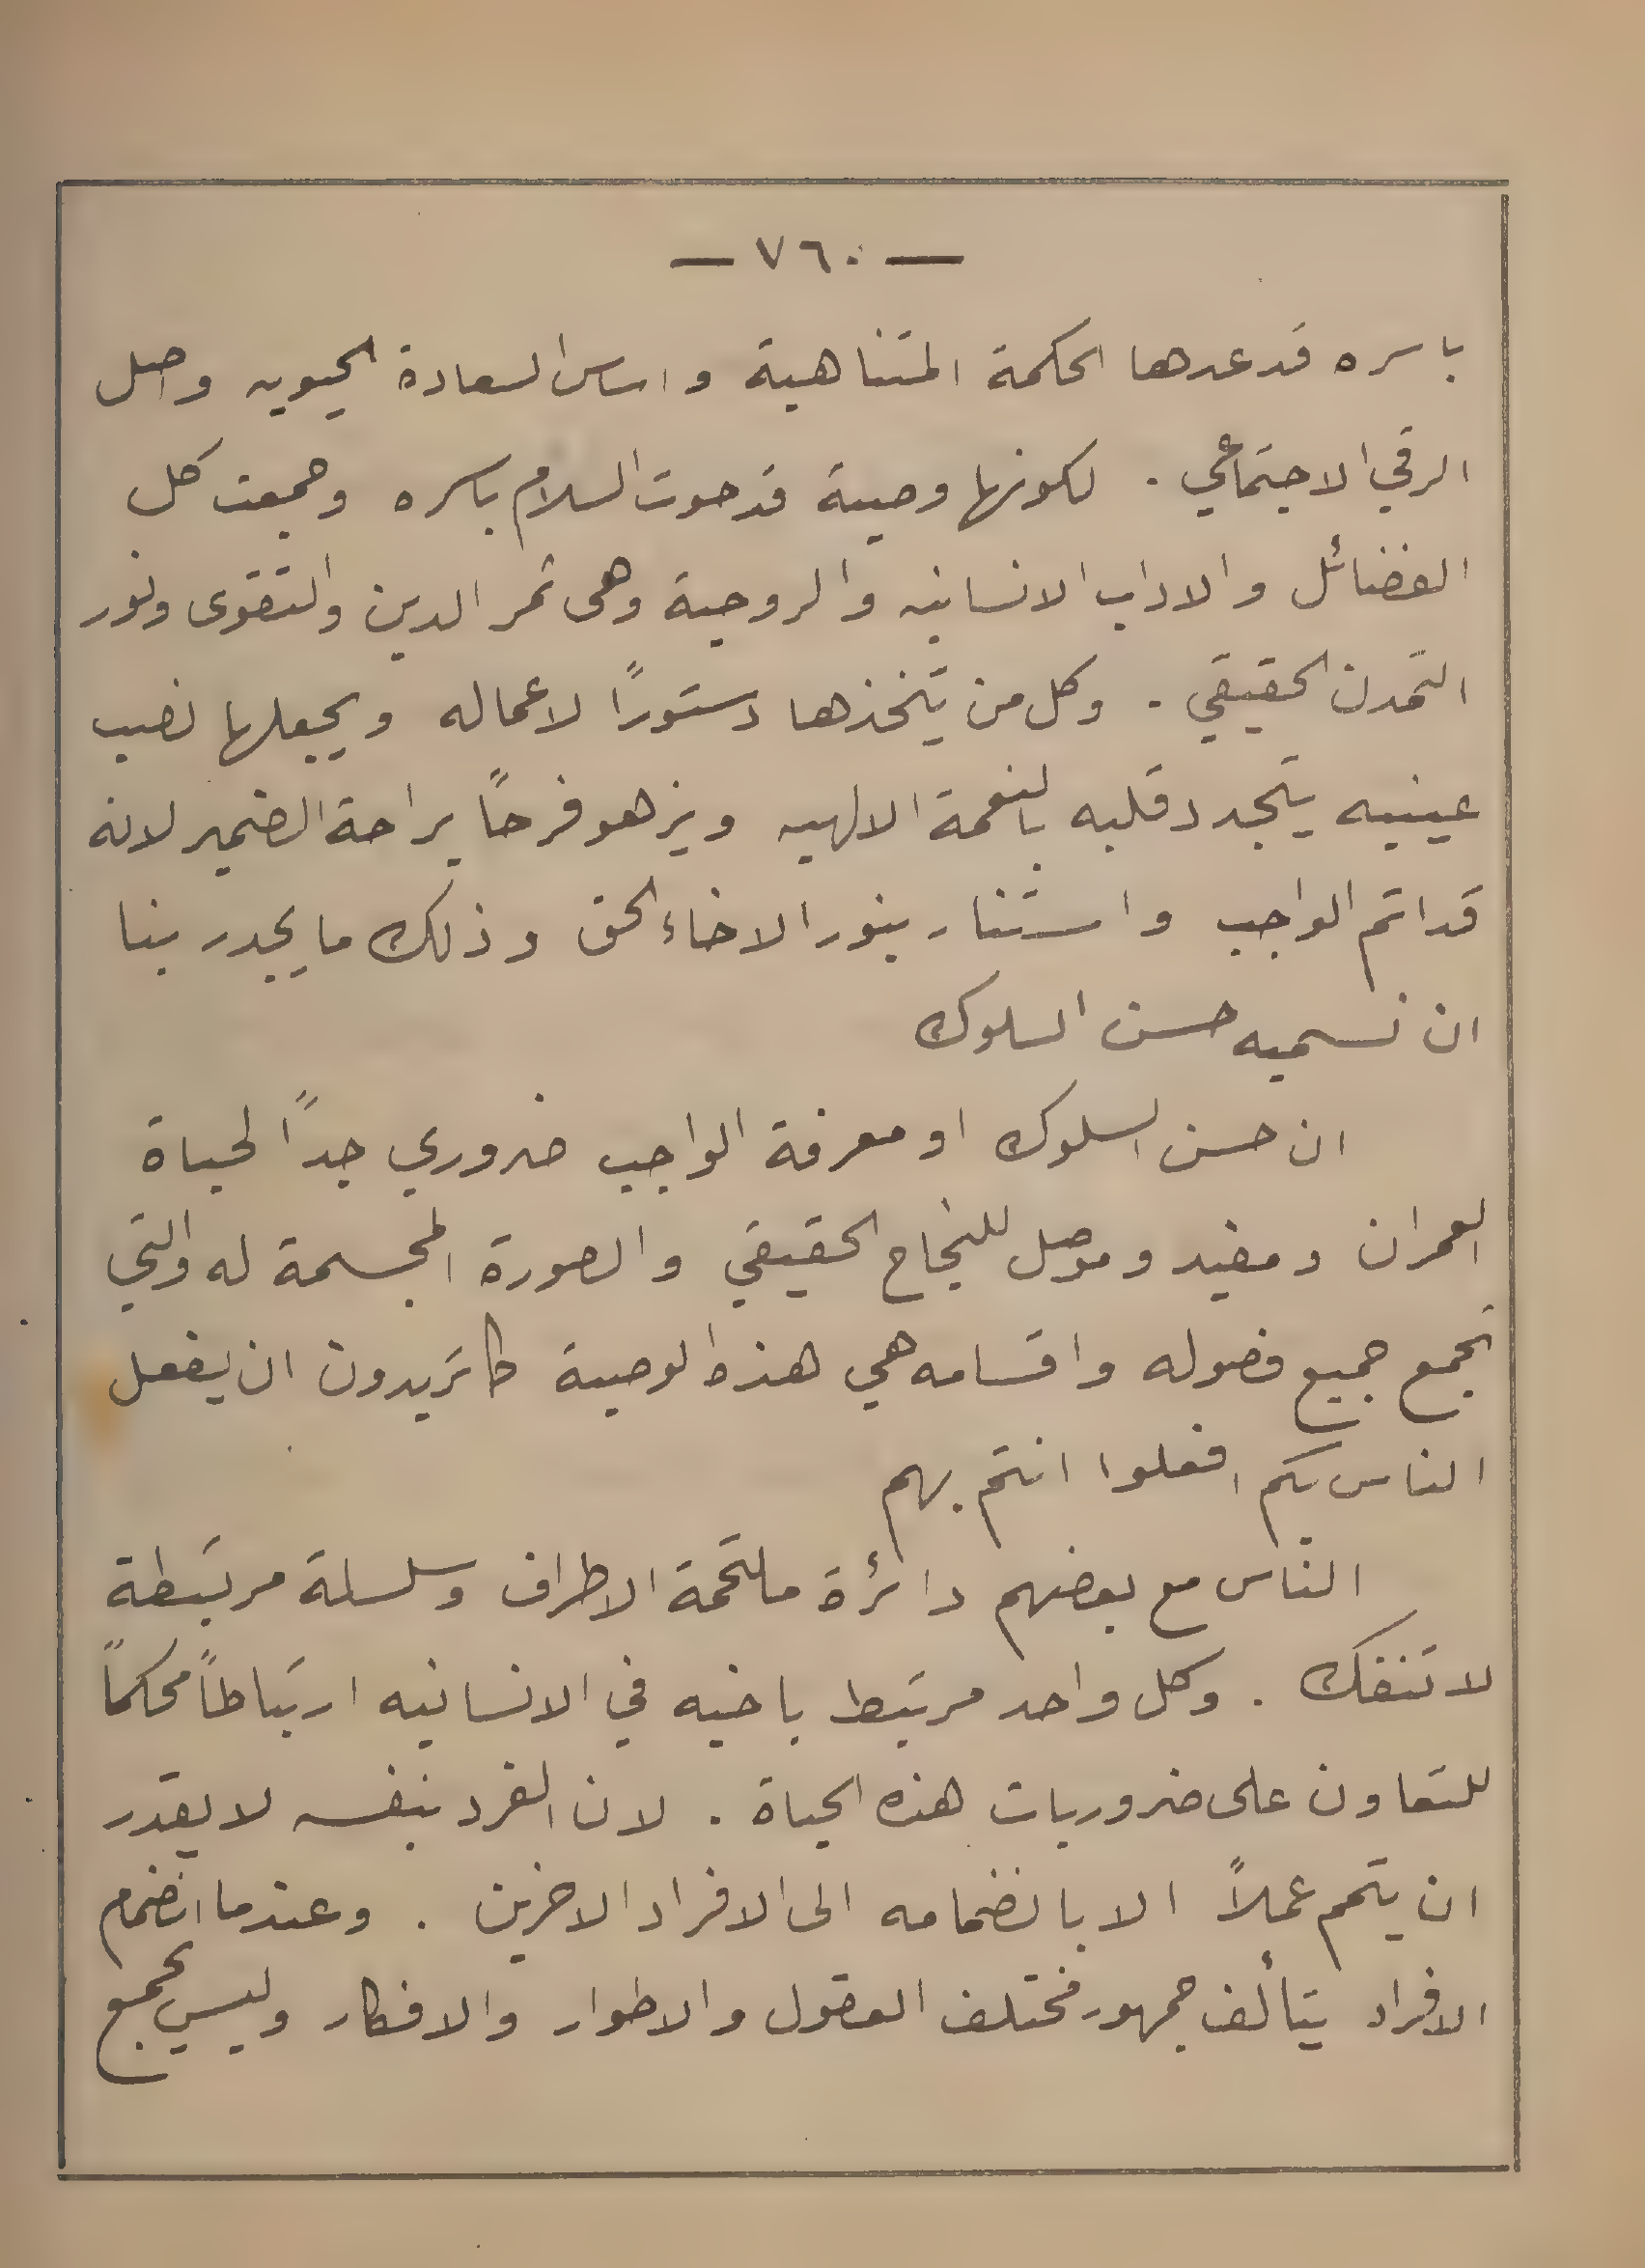 — ٧٦٠ —
باسره قد عدها الحكمة المتناهية واساس السعادة الحيويه واصل
الرقي الاجتماعي . لكونها وصية قد حوت السلام باسره وجمعت كل
الفضائل والاداب الانسانيه والروحية وهى ثمر الدين والتقوى ونور
التمدن الحقيقي . وكل من يتخذها دستورًا لاعماله ويجعلها نصب
عينيه يتجدد قلبه بالنعمة الالهيه ويزهو فرحًا براحة الضمير لانه
قد اتم الواجب واستنار بنور الاخاء الحق وذلك ما يجدر بنا
ان نسميه حسن السلوك
ان حسن السلوك او معرفة الواجب ضروري جدًا لحياة
العمران ومفيد وموصل للنجاح الحقيقي والصورة المجسمة له والتي
تجمع جميع فصوله واقسامه هي هذه الوصية كما تريدون ان يفعل
الناس بكم افعلوا انتم بهم
الناس مع بعضهم دائرة ملتحمة الاطراف وسلسلة مرتبطة
لا تنفك . وكل واحد مرتبط باخيه في الانسانيه ارتباطاً محكماً
للتعاون على ضروريات هذه الحياة . لان الفرد بنفسه لا يقدر
ان يتمم عملاً الا بانضمامه الى الافراد الاخرين . وعندما انضمام
الافراد يتألف جمهور مختلف العقول والاطوار والافكار وليس لجميع